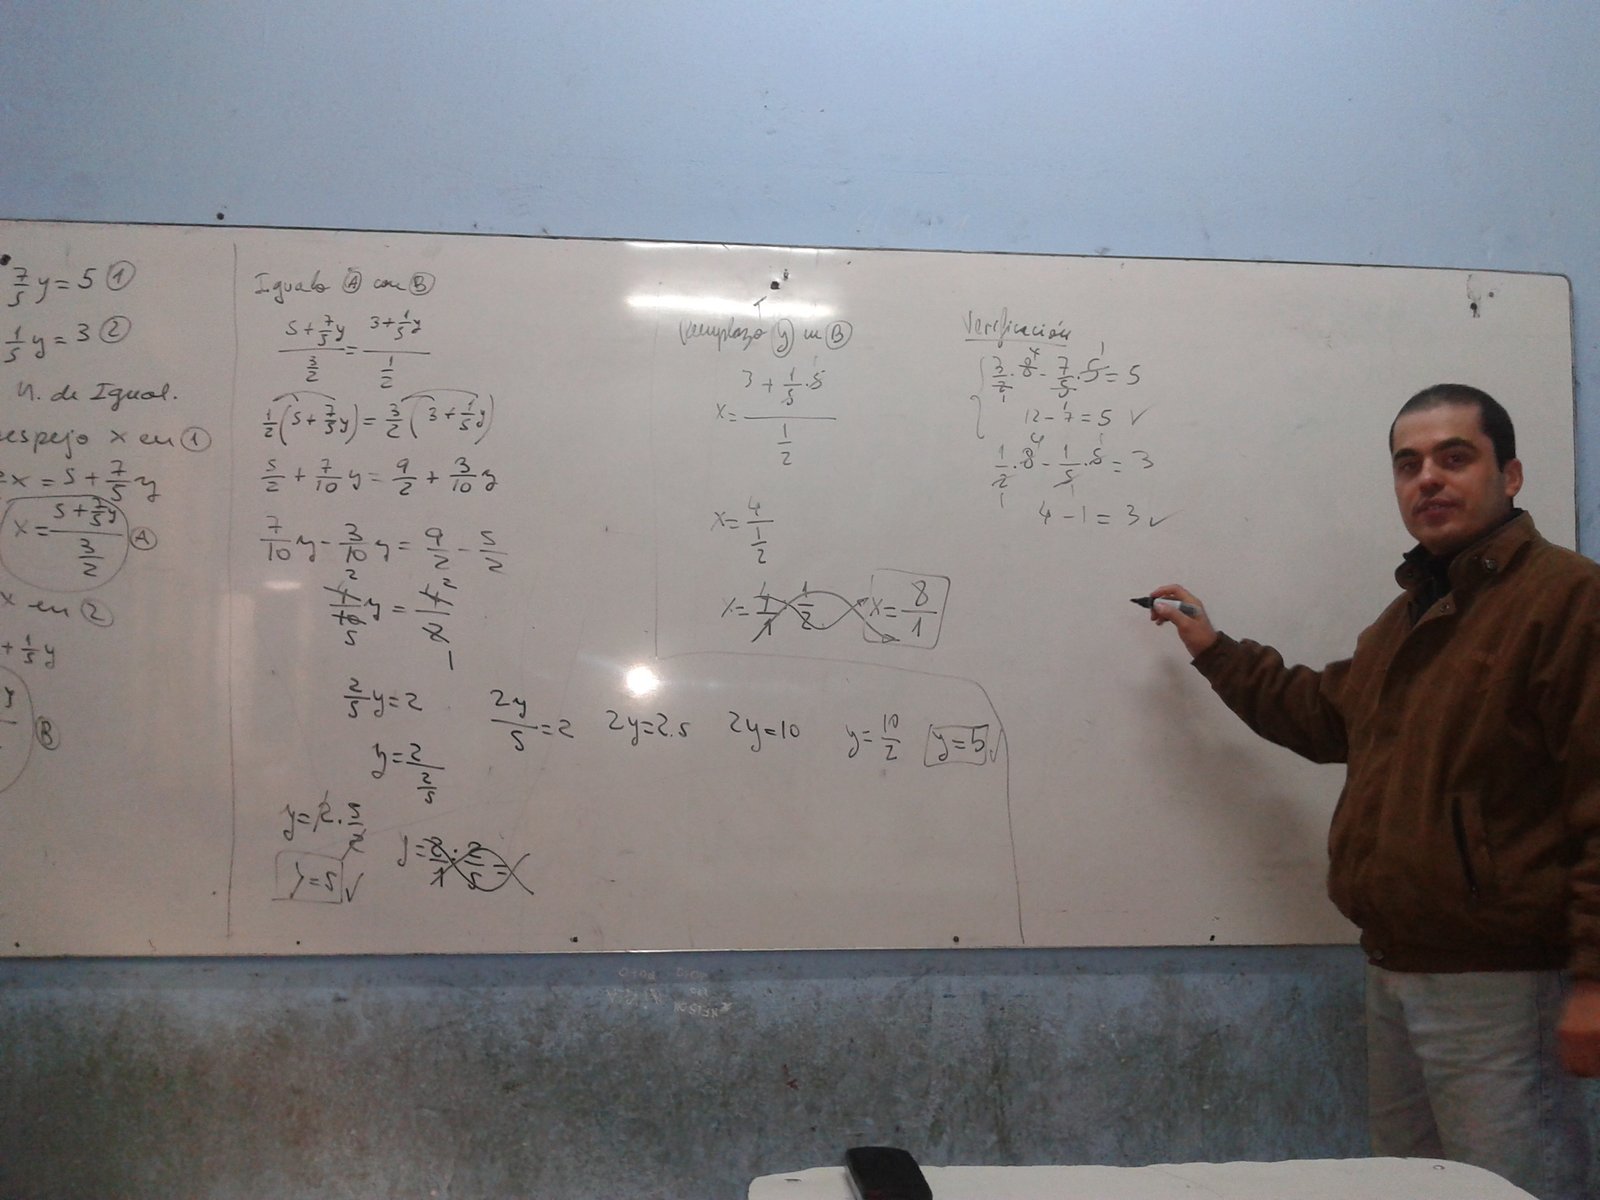 7/5 y = 5 ①
1/5 y = 3 ②
M. de Igual.
espejo x en ①
x = 5 + 7/5 y
x = (5 + 7/5 y) / (3/2) Ⓐ
x en ②
+ 1/5 y
y
Ⓑ
Igualo Ⓐ con Ⓑ
(5 + 7/5 y) / (3/2) = (3 + 1/5 y) / (1/2)
1/2 (5 + 7/5 y) = 3/2 (3 + 1/5 y)
5/2 + 7/10 y = 9/2 + 3/10 y
7/10 y - 3/10 y = 9/2 - 5/2
2
4/10 y = 4/2 2
5 1
2/5 y = 2
y = 2 / (2/5)
y = 2 . 5/2
y = 5 ✓
y = 2/1 . 2/5 =
2y/5 = 2 2y = 2.5 2y = 10 y = 10/2 y = 5 ✓
Remplazo y en Ⓑ
x = (3 + 1/5 . 5) / (1/2)
x = 4 / (1/2)
x = 4/1 1/2 x = 8/1
Verificación
3/2 . 8 - 7/5 . 5 = 5
12 - 7 = 5 ✓
1/2 . 8 - 1/5 . 5 = 3
4 - 1 = 3 ✓